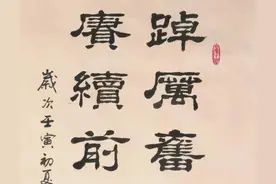 踔厲奮
賡續前
歲次壬寅初夏